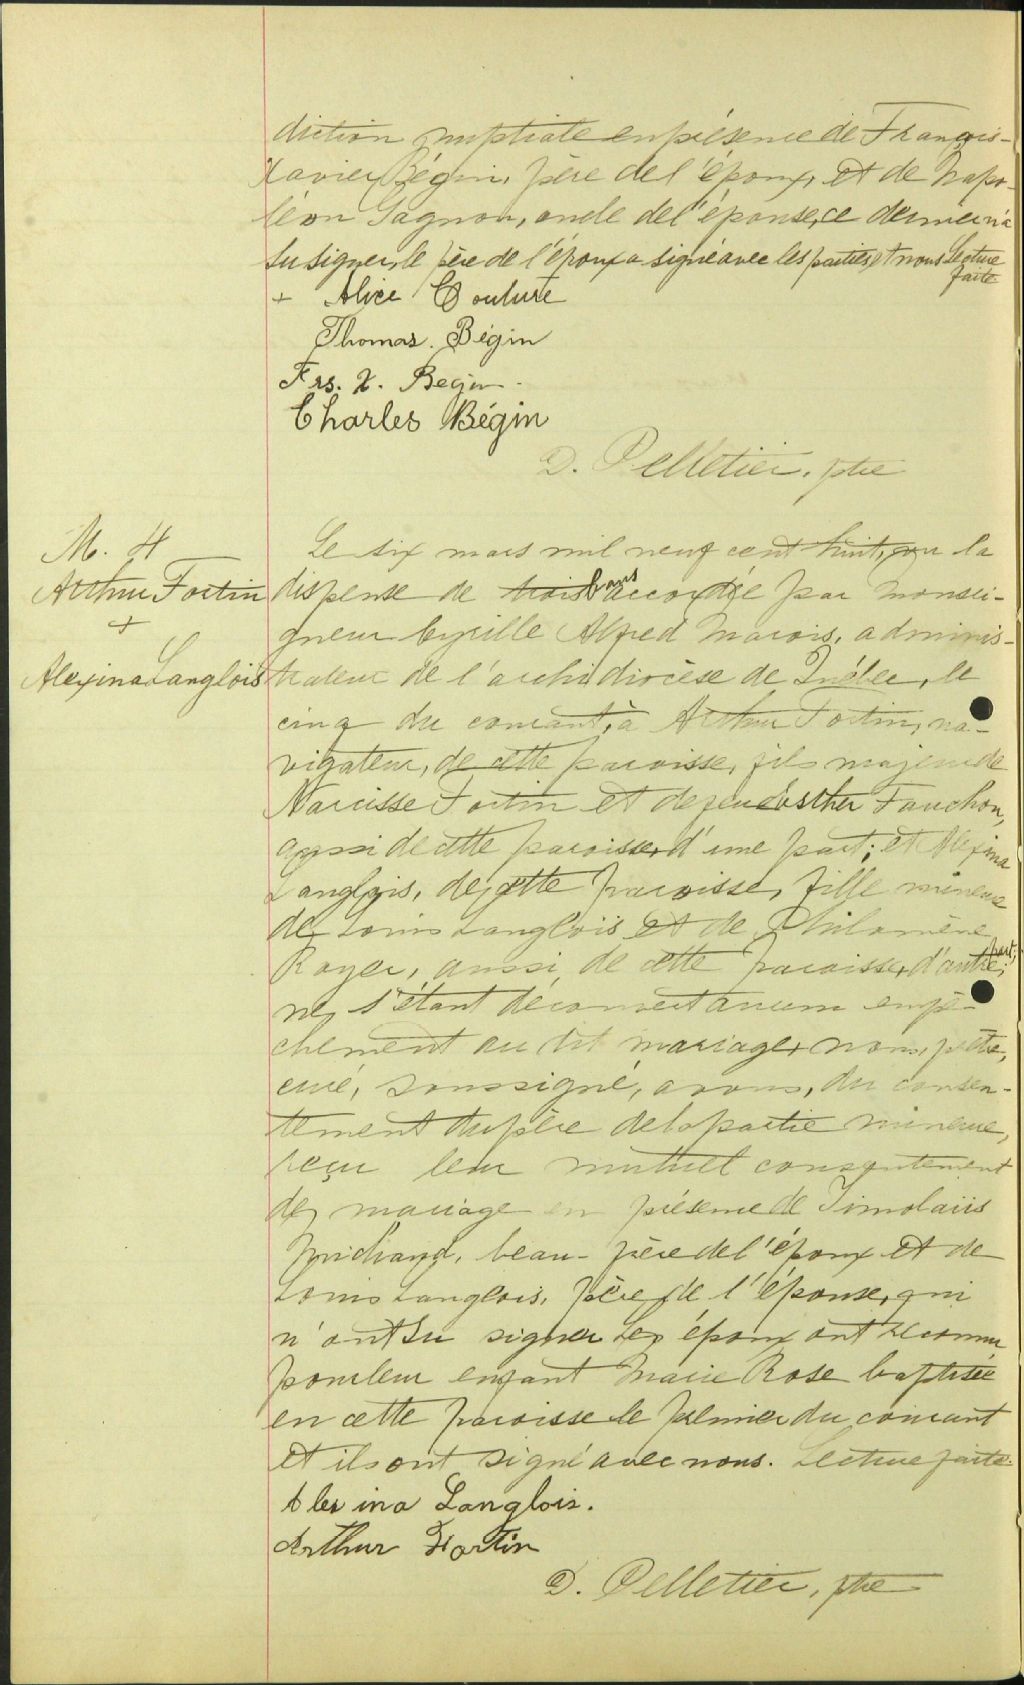 diction nuptiale en présence de François-
Xavier Bégin, père de l'époux, et de Napo-
léon Gagnon, oncle de l'épouse, ce dernier n'a
su signer, le père de l'époux a signé avec les parties et nous Lecture
faite
+ Alice Couture
Thomas. Bégin
Frs. X. Begin.
Charles Bégin
D. Pelletier, ptre
M. 4
Arthur Fortin
+
Alexina Langlois
Le six mars mil neuf cent huit, vu la
dispense de trois bans accordée par Monsei-
gneur Cyrille Alfred Marois, adminis-
trateur de l'archidiocèse de Québec, le
cinq du courant, à Arthur Fortin, na-
vigateur, de cette paroisse, fils majeur de
Narcisse Fortin et de feue Esther Fauchon,
aussi de cette paroisse, d'une part; et Alexina
Langlois, de cette paroisse, fille mineure
de Louis Langlois et de Philomène
Royer, aussi de cette paroisse, d'autre part;
ne s'étant découvert aucun empê-
chement au dit mariage, nous, prêtre,
curé, soussigné, avons, du consen-
tement du père de la partie mineure,
reçu leur mutuel consentement
de mariage en présence de Timolaüs
beau-père de l'époux et de
Louis Langlois, père de l'épouse, qui
n'ont su signer Les époux ont reconnu
pour leur enfant Marie Rose baptisée
en cette paroisse le premier du courant
et ils ont signé avec nous. Lecture faite.
Alexina Langlois.
Arthur Fortin
D. Pelletier, ptre